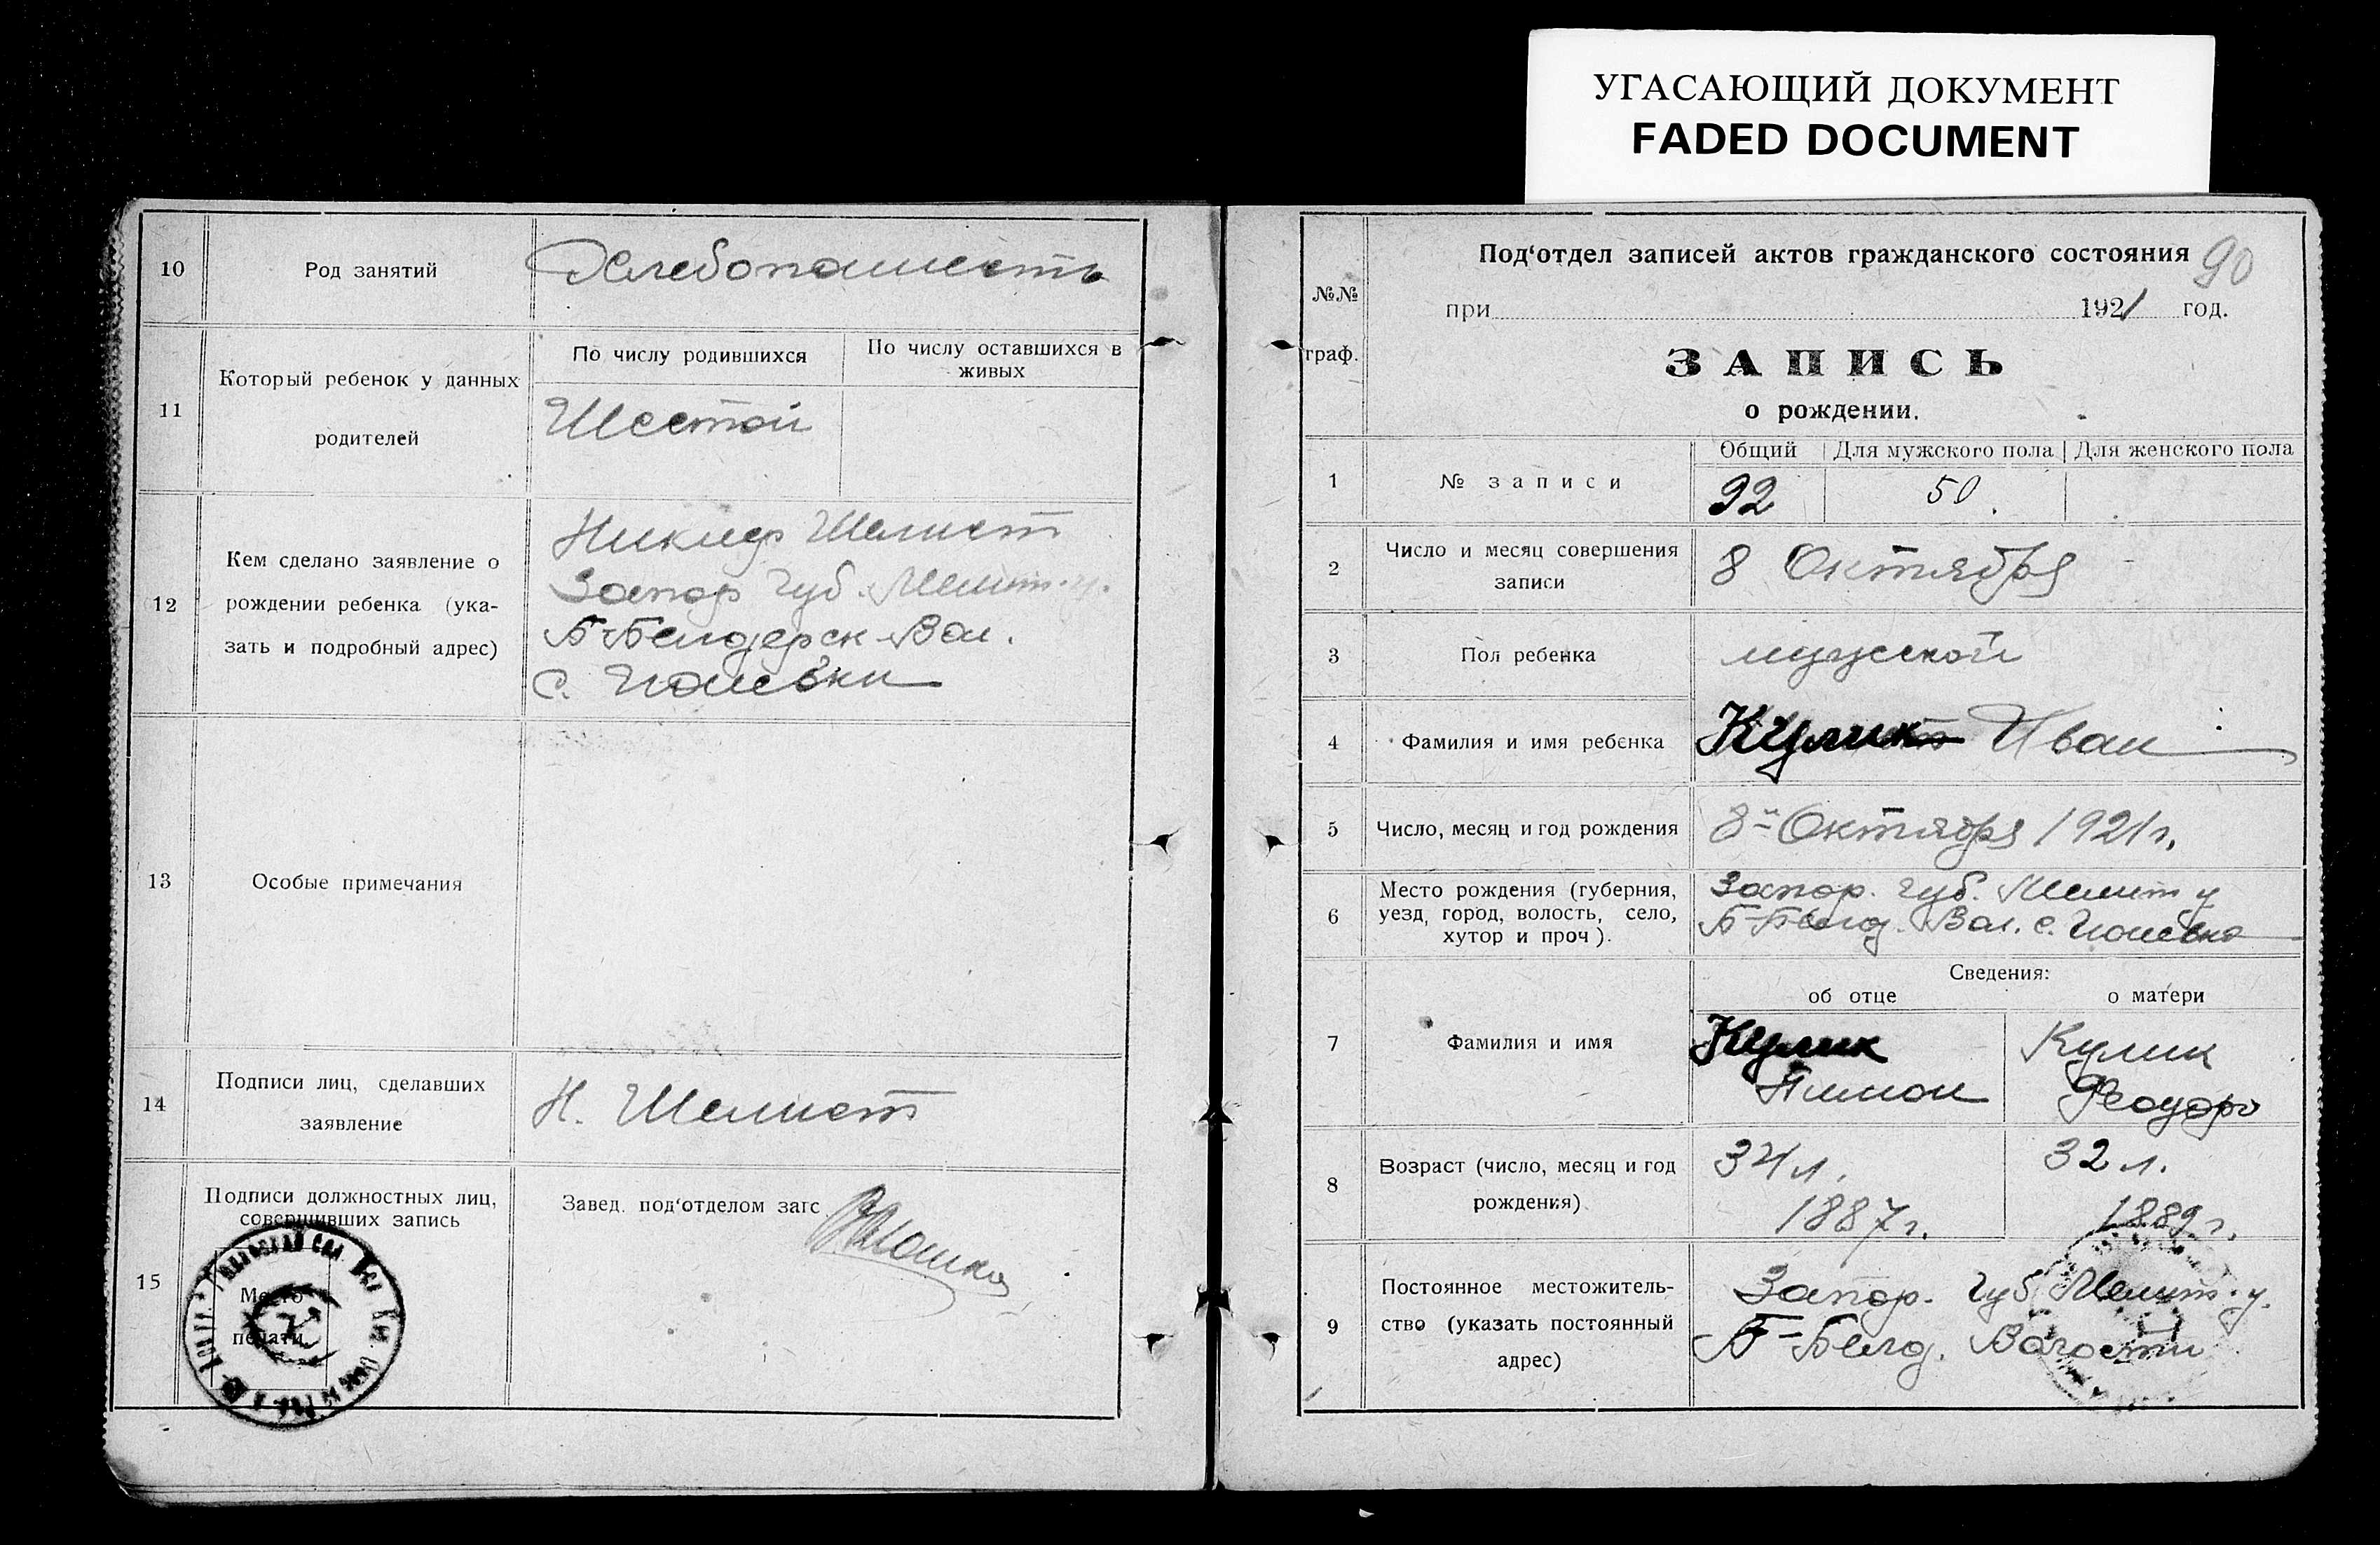 УГАСАЮЩИЙ ДОКУМЕНТ
FADED DOCUMENT
10
Род занятий
Хлебопашество
11
Который ребенок у данных
родителей
По числу родившихся
По числу оставшихся в
живых
Шестой
12
Кем сделано заявление о
рождении ребенка (ука-
зать и подробный адрес)
Шелист
Запор губ. Мелит. у.
Б-Белозерск Вол.
с.
13
Особые примечания
14
Подписи лиц, сделавших
заявление
Н. Шелист
15
Подписи должностных лиц,
совершивших запись
Место
печати.
Завед. под‘отделом загс
№№
граф.
Под‘отдел записей актов гражданского состояния
90
при 1921 год.
ЗАПИСЬ
о рождении.
1
№ записи
Общий
Для мужского пола
Для женского пола
92
50.
2
Число и месяц совершения
записи
8 Октября
3
Пол ребенка
мужской
4
Фамилия и имя ребенка
Кулик Иван
5
Число, месяц и год рождения
8го Октября 1921 г.
6
Место рождения (губерния,
уезд, город, волость, село,
хутор и проч).
Запор. губ. Мелит у
Б-Белоз. Вол. с.
Сведения:
об отце
о матери
7
Фамилия и имя
Кулик
Кулик
Феодора
8
Возраст (число, месяц и год
рождения)
34 л.
1887 г.
32 л.
1889 г.
9
Постоянное местожитель-
ство (указать постоянный
адрес)
Запор. губ. Мелит. у.
Б-Белоз. Волости